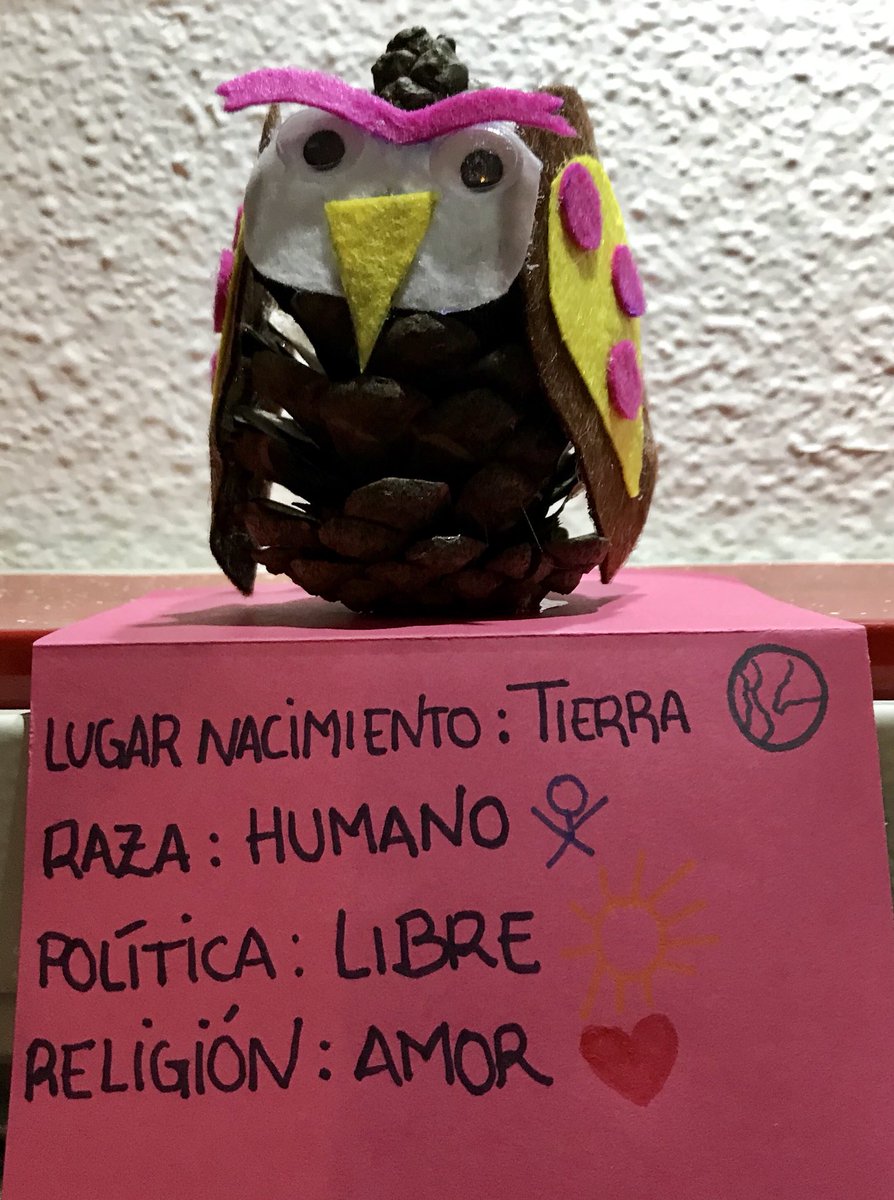 LUGAR NACIMIENTO : TIERRA
RAZA : HUMANO
POLÍTICA : LIBRE
RELIGIÓN : AMOR